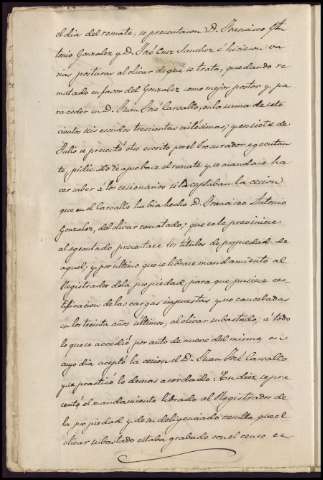 el dia del remate, se presentaron D. Francisco An-
tonio Gonzalez y D. José Cruz Sanchez é hicieron va-
rias posturas al olivar de que se trata, quedando re-
matado en favor del Gonzalez como mejor postor y pa-
ra ceder en D. Juan José Carvallo, en la suma de sete-
cientos seis escudos trescientas milésimas; y en siete de
Julio se presentó otro escrito por el Procurador ejecutan-
te, pidiendo se aprobase el remate y se mandase ha-
cer saber á los cesionarios si aceptaban la cesion
que en el Carvallo habia hecho D. Francisco Antonio
Gonzalez, del olivar rematado; que se le previniese
al ejecutado presentase los títulos de propiedad de
aquel, y por último que se librase mandamiento al
Registrador de la propiedad para que pusiese cer-
tificacion de las cargas impuestas y no canceladas
en los treinta años últimos, al olivar subastado, á todo
lo que se accedió por auto de nueve del mismo, en
cuyo dia aceptó la cesion el D. Juan José Carvallo
y se practicó lo demas acordado. En diez se pre-
sentó el mandamiento librado al Registrador de
la propiedad y de su diligenciado resulta que el
olivar subastado estaba grabado con el censo en